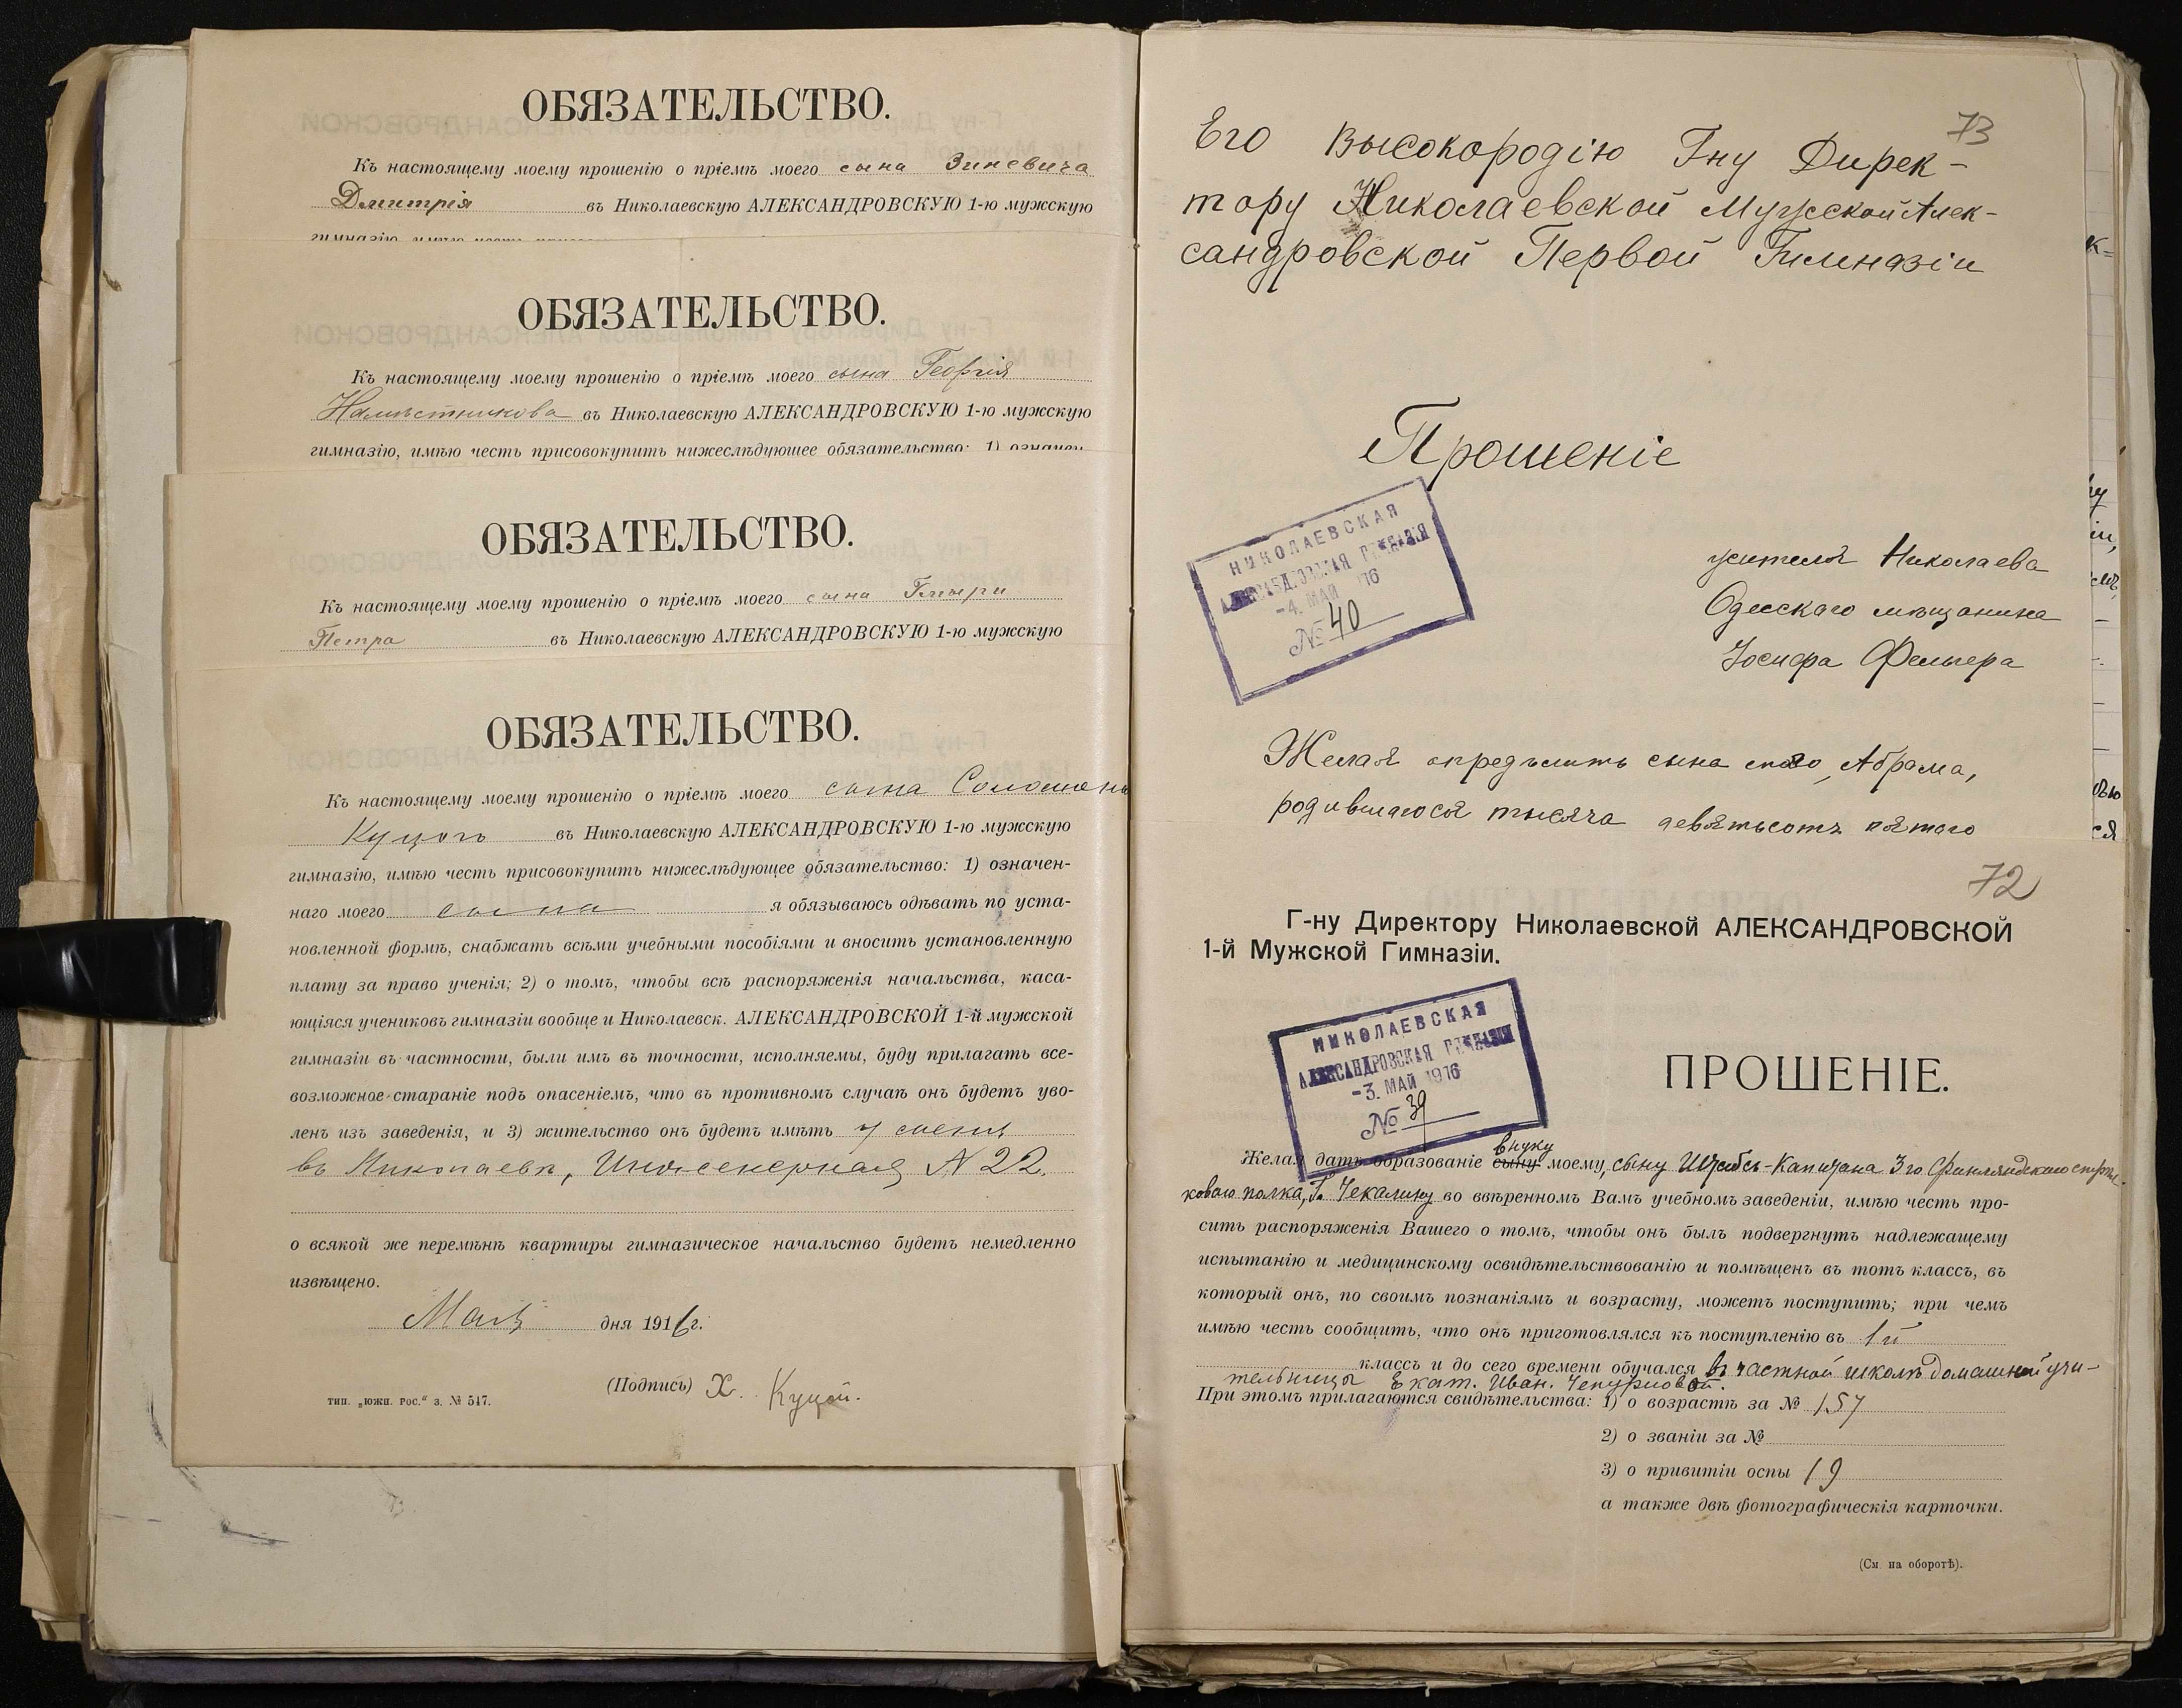 ОБЯЗАТЕЛЬСТВО.
Къ настоящему моему прошенію о пріемѣ моего сына Зиневича
Дмитрія въ Николаевскую АЛЕКСАНДРОВСКУЮ 1-ю мужскую
ОБЯЗАТЕЛЬСТВО.
Къ настоящему моему прошенію о пріемѣ моего сына Георгія
Намѣстникова въ Николаевскую АЛЕКСАНДРОВСКУЮ 1-ю мужскую
гимназію, имѣю честь присовокупить нижеслѣдующее обязательство: 1) означен
ОБЯЗАТЕЛЬСТВО.
Къ настоящему моему прошенію о пріемѣ моего сына
Петра въ Николаевскую АЛЕКСАНДРОВСКУЮ 1-ю мужскую
ОБЯЗАТЕЛЬСТВО.
Къ настоящему моему прошенію о пріемѣ моего сына Соломона
Куцого въ Николаевскую АЛЕКСАНДРОВСКУЮ 1-ю мужскую
гимназію, имѣю честь присовокупить нижеслѣдующее обязательство: 1) означен-
наго моего сына я обязываюсь одѣвать по уста-
новленной формѣ, снабжать всѣми учебными пособіями и вносить установленную
плату за право ученія; 2) о томъ, чтобы всѣ распоряженія начальства, каса-
ющіяся учениковъ гимназіи вообще и Николаевск. АЛЕКСАНДРОВСКОЙ 1-й мужской
гимназіи въ частности, были имъ въ точности, исполняемы, буду прилагать все-
возможное стараніе подъ опасеніемъ, что въ противномъ случаѣ онъ будетъ уво-
ленъ изъ заведенія, и 3) жительство онъ будетъ имѣть у меня
въ Николаевѣ, Инженерная N 22.
о всякой же перемѣнѣ квартиры гимназическое начальство будетъ немедленно
извѣщено.
Мая дня 1916 г.
(Подпись) Х. Куцой.
тип. „южн. рос.“ з. № 547.
73
Его Высокородію Гну Дирек-
тору Николаевской Мужской Алек-
сандровской Первой Гимназіи
Прошеніе
НИКОЛАЕВСКАЯ
АЛЕКСАНДРОВСКАЯ ГИМНАЗІЯ
-4. МАЙ 1916
№ 40
жителя Николаева
Одесскаго мѣщанина
Іосифа Фельера
Желая опредѣлить сына моего, Абрама,
родившагося тысяча девятьсотъ пятого
72
Г-ну Директору Николаевской АЛЕКСАНДРОВСКОЙ
1-й Мужской Гимназіи.
НИКОЛАЕВСКАЯ
АЛЕКСАНДРОВСКАЯ ГИМНАЗІЯ
-3. МАЙ 1916
№ 39
ПРОШЕНІЕ.
внуку
Желая дать образованіе сыну моему, сыну Штабсъ-Капитана 3го Финляндскаго стрѣл-
коваго полка, Г. Чекалину во ввѣренномъ Вамъ учебномъ заведеніи, имѣю честь про-
сить распоряженія Вашего о томъ, чтобы онъ былъ подвергнутъ надлежащему
испытанію и медицинскому освидѣтельствованію и помѣщенъ въ тотъ классъ, въ
который онъ, по своимъ познаніямъ и возрасту, можетъ поступить; при чемъ
имѣю честь сообщить, что онъ приготовлялся къ поступленію въ 1й
классъ и до сего времени обучался въ частной школѣ домашней учи-
тельницы Екат. Иван. Чепурновой.
При этомъ прилагаются свидѣтельства: 1) о возрастѣ за № 157
2) о званіи за №
3) о привитіи оспы 19
а также двѣ фотографическія карточки.
(См. на оборотѣ).